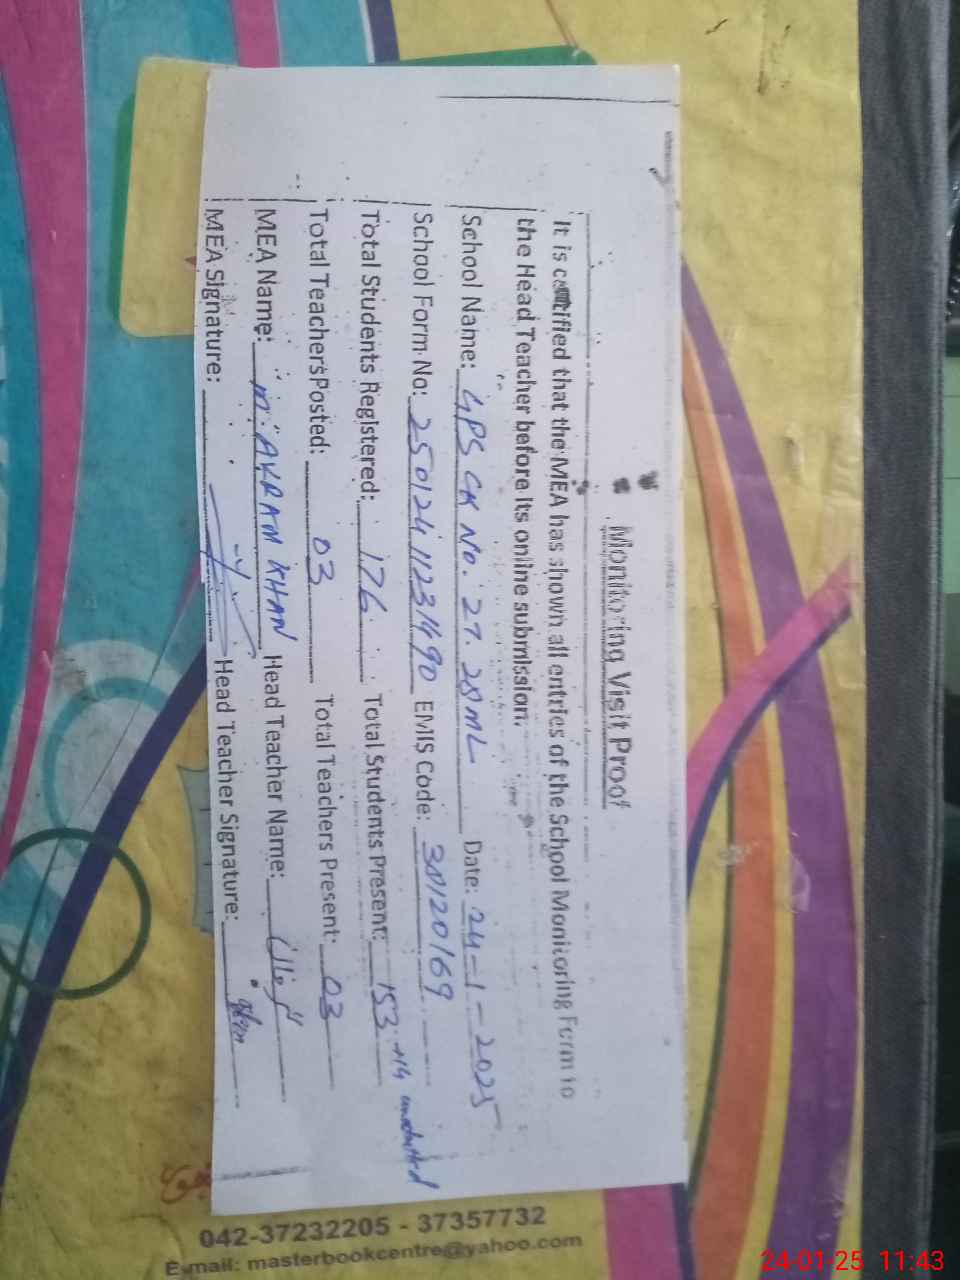 Monitoring Visit Proof
It is certified that the MEA has shown all entries of the School Monitoring Form to
the Head Teacher before its online submission.
School Name: GPS CK No. 27. 28ML Date: 24-1-2025
School Form No: 25012411231490 EMIS Code: 38120169
Total Students Registered: 176 Total Students Present: 153 +14 unadmitted
Total TeachersPosted: 03 Total Teachers Present: 03
MEA Name: M. AKRAM KHAN Head Teacher Name:
MEA Signature: Head Teacher Signature:
042-37232205 - 37357732
E-mail: masterbookcentre@yahoo.com
24-01-25 11:43